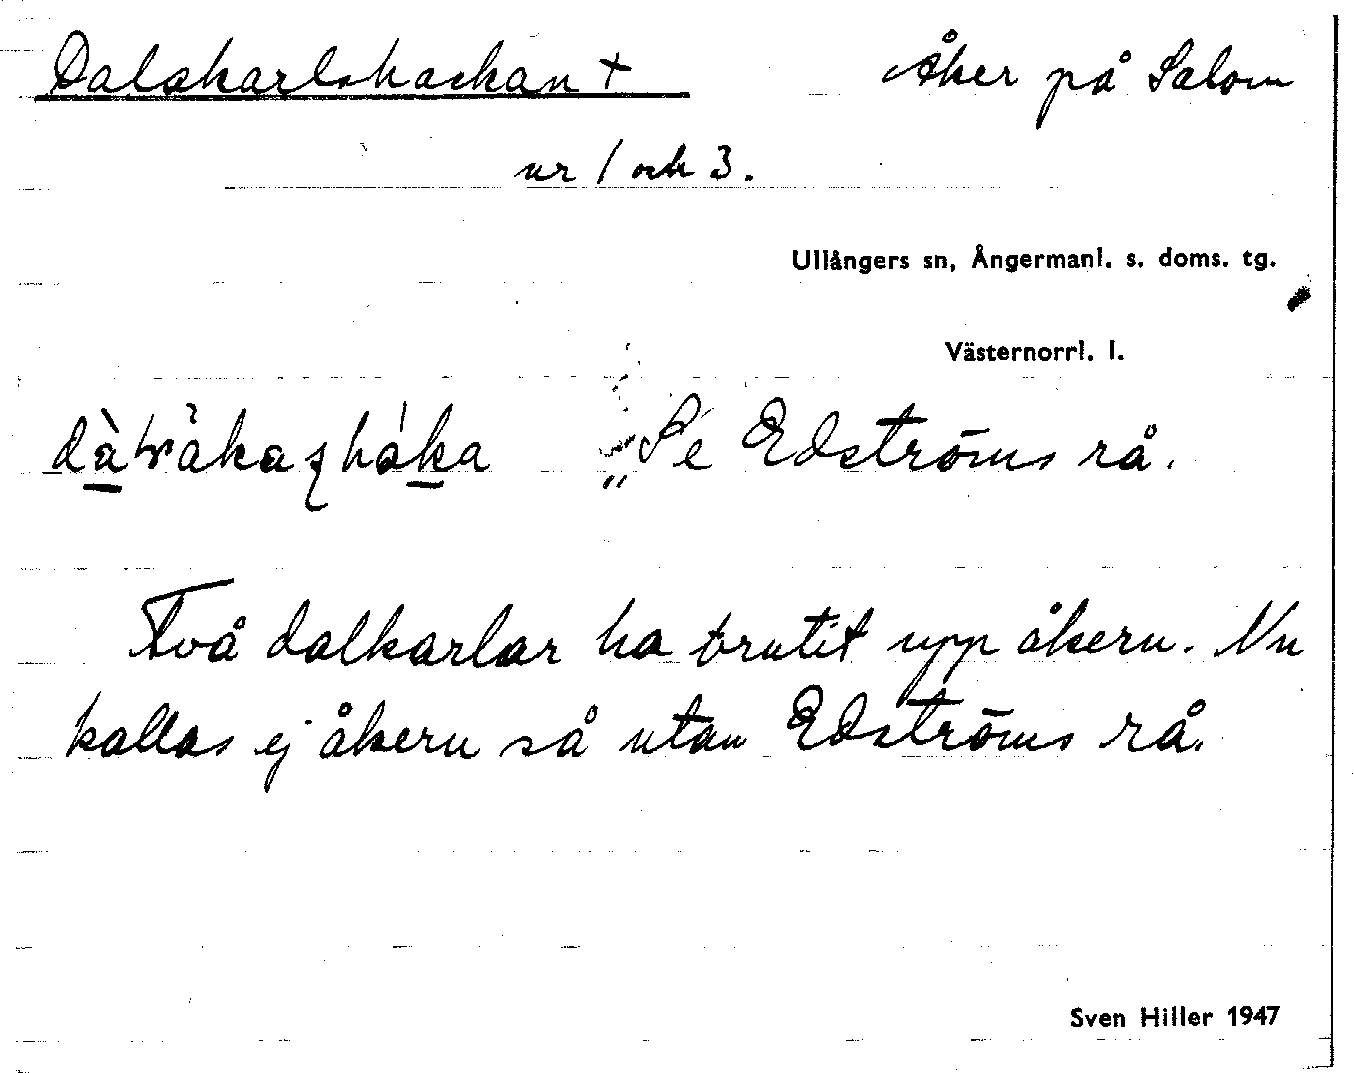 Dalskarlshackan + Åker på Salom
nr 1 och 3.
Ullångers sn, Ångermanl. s. doms. tg.
Västernorrl. l.
Se Edströms rå.
Två dalkarlar ha brutit upp åkern. Nu
kallas ej åkern så utan Edströms rå.
Sven Hiller 1947